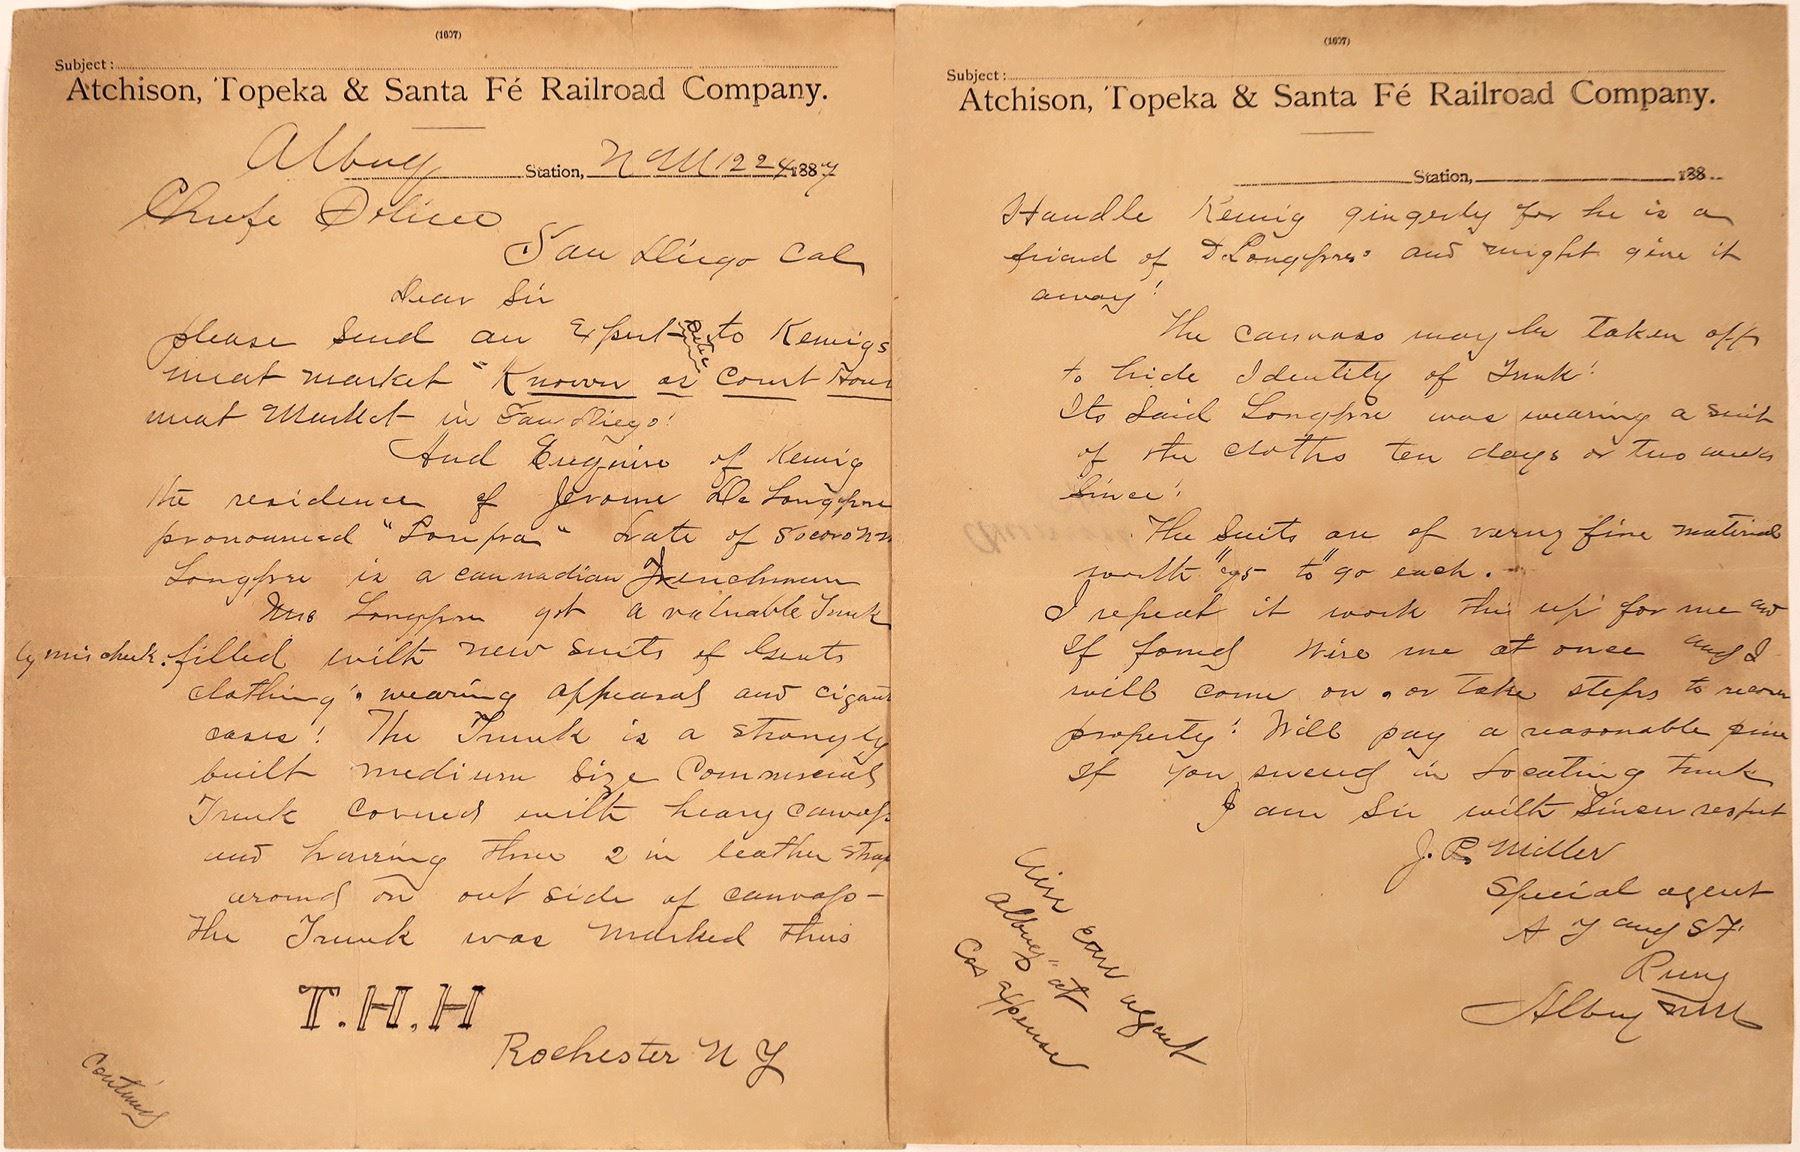 (1607)
Subject:
Atchison, Topeka & Santa Fé Railroad Company.
Albuq Station, N M 12 24 1887
Chiefe Police
San Diego Cal
Dear Sir
please send an Expert to Kemigs
meat market "Known as Court Hous
meat Market in San Diego!
And Enquire of Kemig
the residence of Jerome De Longpre
pronounced "Lonpra" Late of Socoro N M
Longpre is a cannadian Frenchman
Longpre got a valuable Trunk
by mis check. filled with new suits of Gents
clothing! wearing appearal and cigarett
cases! The Trunk is a strongly
built medium size Commercial
Trunk covered with heavy canvass
and having three 2 in leather strap
around on out side of canvass -
The Trunk was marked thus
T.H.H
Rochester N Y
Continued
(1607)
Subject:
Atchison, Topeka & Santa Fé Railroad Company.
Station, 188
Handle Kemig gingerly for he is a
friend of De Longpres and might give it
away!
The canvass may be taken off
to hide Identity of Trunk!
Its Said Longpre was wearing a suit
of the cloths ten days or two weeks
since!
The Suits are of verry fine material
worth to each.
I repeat it work this up for me and
If found Wire me at once and I
will come on. or take steps to recover
property! Will pay a reasonable price
If you suceed in Locating trunk
I am Sir with Sincer respect
J. P. Miller
Special agent
A T and S F
Albuq NM
Wire care agent
Albuq" at
Cos Expense